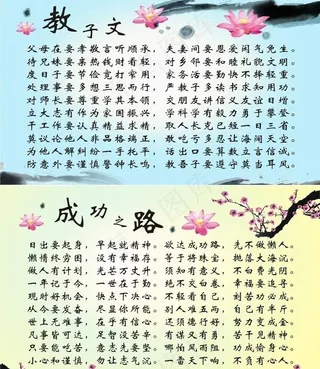 教子文
父母在要孝敬言听顺承，夫妻间要恩爱闲气免生。
待兄妹要亲热钱财看轻，对乡邻要和睦礼貌文明。
度日子要节俭宽打窄用，家务活要勤快不择轻重。
处理事要多想三思而行，严教子多读书求知用功。
对师长要尊重学其本领，交朋友讲信义友谊日增。
立大志有作为家国振兴，学科学有毅力勇于攀登。
干工作要认真精益求精，取人长克己短一日三省。
莫议论他人非品格端正，吃点亏多忍让海阔天空。
为他人解纠纷一手托平，话出口要算数立言信诚。
防意外要谨慎警钟长鸣，教子言要遵守莫当耳风。
成功之路
日出要起身，早起就精神。欲达成功路，先不做懒人。
懒惰房檐满，没有幸福存。等于将珠宝，抛落大海沉。
做人有计划，光苦万丈升。须知有意义，不白费光阴。
一年记于今，一世在于勤。绝不空白卷，幸福要追寻。
现时好机会，快点下决心。不轻看自己，刻苦功必成。
从今要发奋，不显你所能。别人难五雨，自己有半斤。
世上无难事，在乎有信心。还须德行好，努力变成金。
凡事皆可达，又督没苦辛。哪怕风雨阻，功成愉身心。
只要能吃苦，意志先要坚。
小心和谨慎，勿让志气沉。一番天下响，不负有心人。